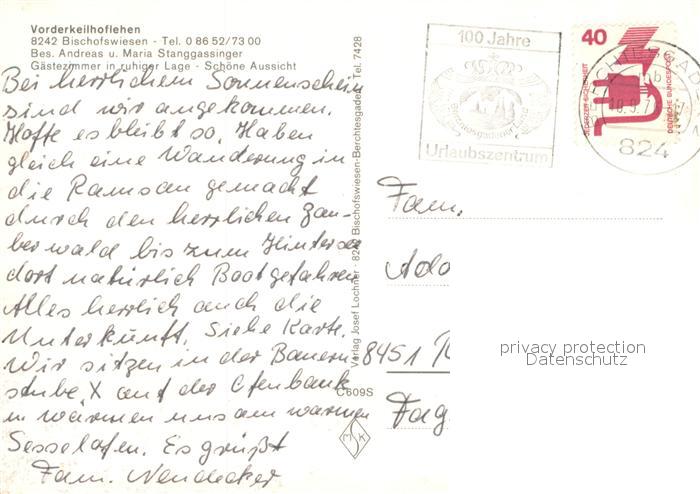 Vorderkeilhoflehen
8242 Bischofswiesen - Tel. 0 86 52/73 00
Bes. Andreas u. Maria Stanggassinger
Gästezimmer in ruhiger Lage - Schöne Aussicht
Bei herrlichem Sonnenschein
sind wir angekommen.
Hoffe es bleibt so. Haben
gleich eine Wanderung in
die Ramsau gemacht
durch den herrlichen Zau-
berwald bis zum Hintersee
dort natürlich Boot gefahren
Alles herrlich auch die
Unterkunft. Siehe Karte.
Wir sitzen in der Bauern-
stube X auf der Ofenbank
u wärmen uns am warmen
Sesselofen. Es grüßt
Fam.
Verlag Josef Lochner · 8242 Bischofswiesen-Berchtesgaden Tel. 7428
C609S
MSK
100 Jahre
Berchtesgadener Land
Urlaubszentrum
40
JEDERZEIT SICHERHEIT
DEUTSCHE BUNDESPOST
824
Fam.
8451
privacy protection
Datenschutz